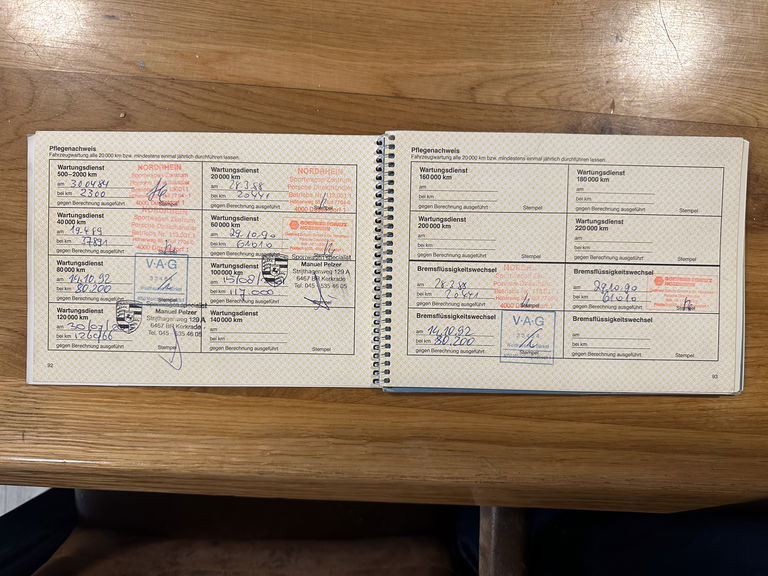 Pflegenachweis
Fahrzeugwartung alle 20 000 km bzw. mindestens einmal jährlich durchführen lassen.
Wartungsdienst
500–2000 km
am
bei km 2300
gegen Berechnung ausgeführt
Stempel
NORDRHEIN
Sportwagen Zentrum
Wartungsdienst
20 000 km
am 28.3.88
bei km 20441
gegen Berechnung ausgeführt
Stempel
NORDRHEIN
Sportwagen Zentrum
Porsche Direkthändler
Wartungsdienst
40 000 km
am
bei km 37891
gegen Berechnung ausgeführt
NORDRHEIN
Sportwagen Zentrum
Porsche Direkthändler
Wartungsdienst
60 000 km
am 29.10.90
bei km 61010
gegen Berechnung ausgeführt
Wartungsdienst
80 000 km
am 14.10.92
bei km 80.200
gegen Berechnung ausgeführt
V·A·G
Wartungsdienst
100 000 km
am
bei km 117.000
gegen Berechnung ausgeführt
Sportwagen Specialist
Manuel Pelzer
Strijthagerweg 129 A
6467 BR Kerkrade
Tel. 045 - 535 46 05
Wartungsdienst
120 000 km
am
bei km
gegen Berechnung ausgeführt
Stempel
Manuel Pelzer
Strijthagerweg 129 A
6467 BR Kerkrade
Tel. 045 - 535 46 05
Wartungsdienst
140 000 km
am
bei km
gegen Berechnung ausgeführt
Stempel
92
Pflegenachweis
Fahrzeugwartung alle 20 000 km bzw. mindestens einmal jährlich durchführen lassen.
Wartungsdienst
160 000 km
am
bei km
gegen Berechnung ausgeführt
Stempel
Wartungsdienst
180 000 km
am
bei km
gegen Berechnung ausgeführt
Stempel
Wartungsdienst
200 000 km
am
bei km
gegen Berechnung ausgeführt
Stempel
Wartungsdienst
220 000 km
am
bei km
gegen Berechnung ausgeführt
Stempel
Bremsflüssigkeitswechsel
am 28.3.88
bei km 20441
gegen Berechnung ausgeführt
Stempel
Bremsflüssigkeitswechsel
am 29.10.90
bei km 61010
gegen Berechnung ausgeführt
Stempel
Bremsflüssigkeitswechsel
am 14.10.92
bei km 80.200
gegen Berechnung ausgeführt
Stempel
V·A·G
Bremsflüssigkeitswechsel
am
bei km
gegen Berechnung ausgeführt
Stempel
93